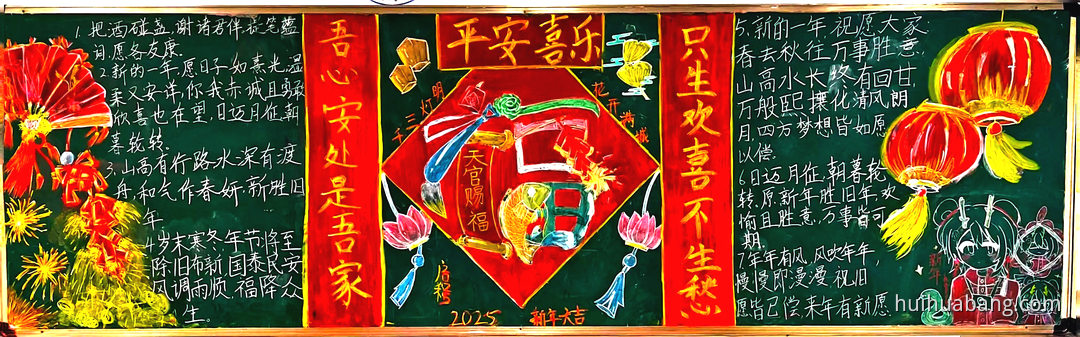 1.把酒碰盏,谢诸君伴
间,愿各友康.
2.新的一年,愿日子如熹光,温
柔又安详,你我赤诚且勇敢
欣喜也在望,日迈月征,朝
暮轮转.
3.山高有行路,水深有渡
舟.和气作春妍,新胜旧
年.
4.岁末寒冬,年节将至
除旧布新,国泰民安
风调雨顺,福降众
生.
吾心安处是吾家
平安喜乐
三千
灯明
花开
满城
天官赐福
洛
2025 新年大吉
只生欢喜不生愁
5.新的一年 祝愿大家:
春去秋往 万事胜意.
山高水长 终有回甘
万般熙攘化清风朗
月,四方梦想皆如愿
以偿.
6.日迈月征,朝暮轮
转.愿新年胜旧年,欢
愉且胜意,万事皆可
期.
7.年年有风,风吹年年,
慢慢即漫漫 祝旧
愿皆已偿,来年有新愿
新年
huihuabang.com